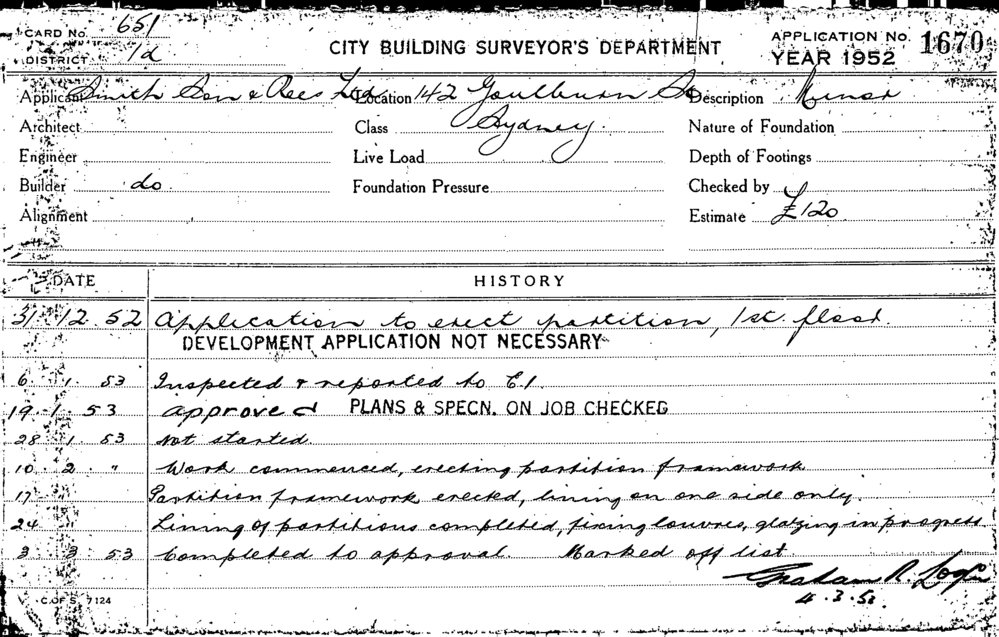 CARD No. 651
DISTRICT 1d
CITY BUILDING SURVEYOR'S DEPARTMENT
APPLICATION No. 1670
YEAR 1952
Applicant Smith Son & Rees Ltd Location 142 Goulburn St Description Minor
Architect Class Sydney. Nature of Foundation
Engineer Live Load Depth of Footings
Builder do. Foundation Pressure Checked by
Alignment Estimate £120
DATE HISTORY
31 12 52 Application to erect partition, 1st. floor.
DEVELOPMENT APPLICATION NOT NECESSARY
6. 1. 53 Inspected & reported to E.I.
19. 1. 53 approved PLANS & SPECN. ON JOB CHECKED
28 1. 53 Not started.
10. 2. " Work commenced, erecting partition framework
17 Partition framework erected, lining on one side only.
24 " Lining of partitions completed, fixing louvres, glazing in progress
3 3 53 Completed to approval. Marked off list
Graham R.
4.3.53
C. OF S. 7124